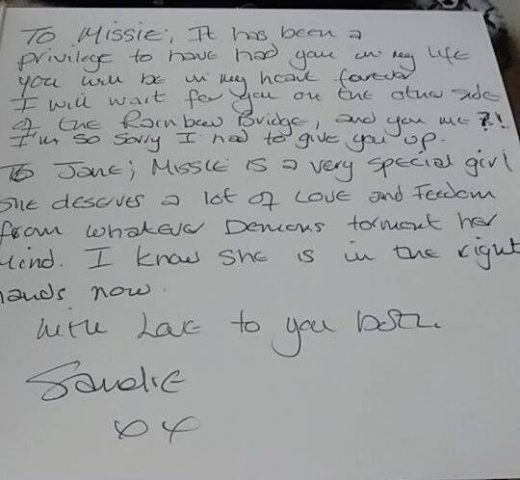 To Missie, It has been a
privilege to have had you in my life
you will be in my heart forever
I will wait for you on the other side
of the Rainbow Bridge, and you me?!
I'm so sorry I had to give you up.
To Jane; Missie is a very special girl
she deserves a lot of love and freedom
from whatever Demons torment her
Mind. I know she is in the right
hands now.
with Love to you both.
Sandie
xx